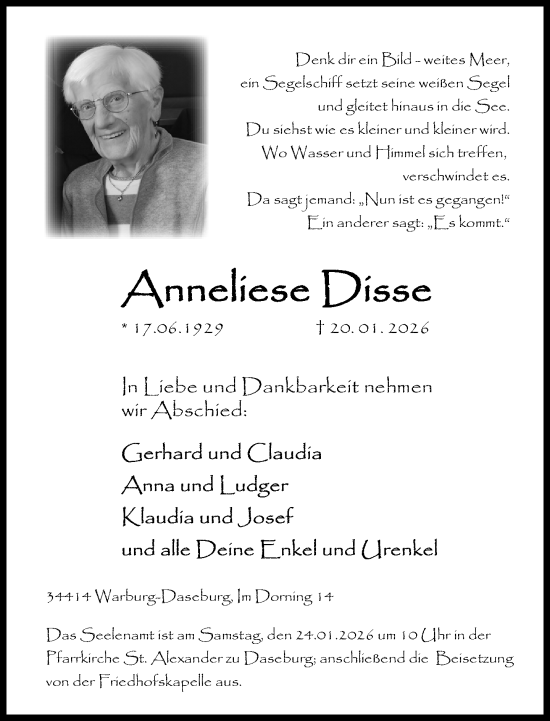 Denk dir ein Bild - weites Meer,
ein Segelschiff setzt seine weißen Segel
und gleitet hinaus in die See.
Du siehst wie es kleiner und kleiner wird.
Wo Wasser und Himmel sich treffen,
verschwindet es.
Da sagt jemand: „Nun ist es gegangen!“
Ein anderer sagt: „Es kommt.“
Anneliese Disse
* 17.06.1929 † 20.01.2026
In Liebe und Dankbarkeit nehmen
wir Abschied:
Gerhard und Claudia
Anna und Ludger
Klaudia und Josef
und alle Deine Enkel und Urenkel
34414 Warburg-Daseburg, Im Dorning 14
Das Seelenamt ist am Samstag, den 24.01.2026 um 10 Uhr in der
Pfarrkirche St. Alexander zu Daseburg; anschließend die Beisetzung
von der Friedhofskapelle aus.